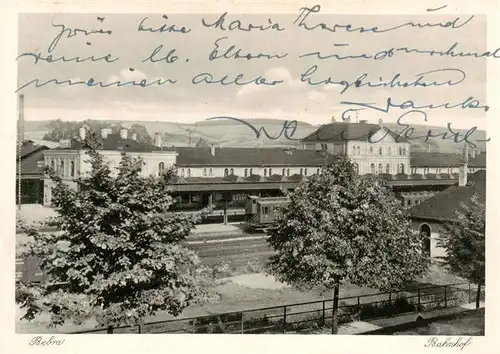 Grüss bitte Maria Therese und
deine lb. Eltern und nochmals
meinen aller herzlichsten
Dank
Bebra
Bahnhof